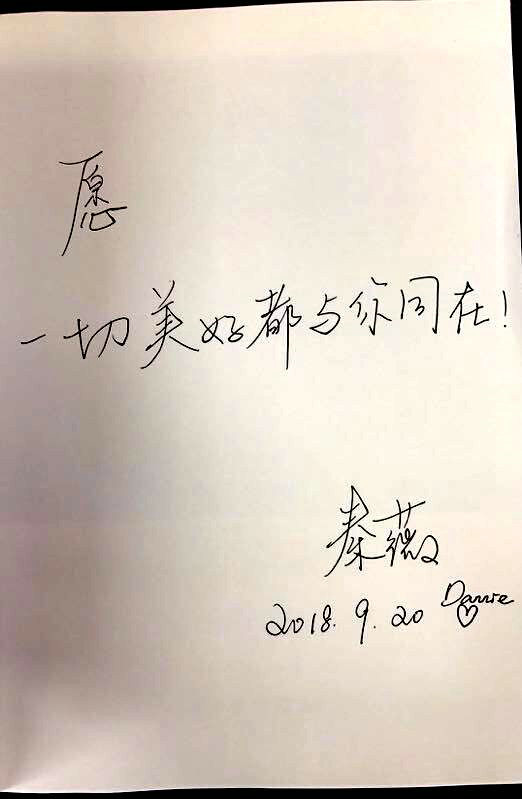 愿
一切美好都与你同在!
秦薇
2018.9.20
♡